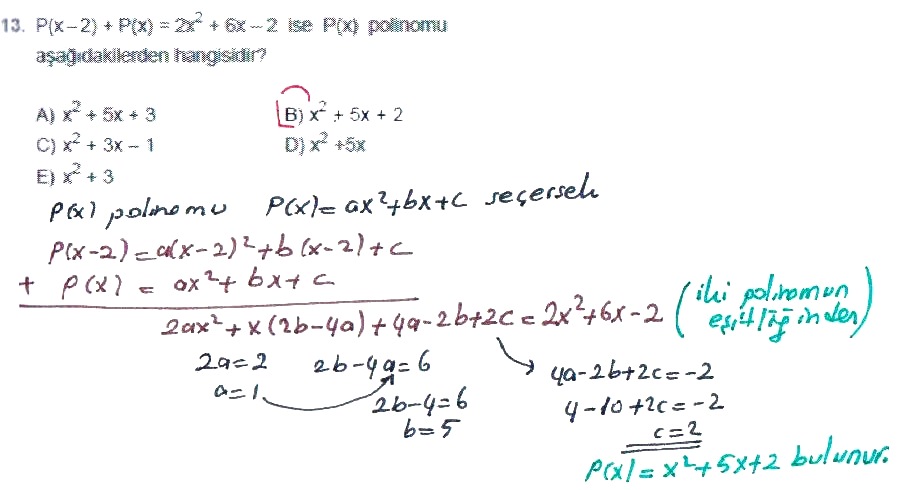 13. P(x-2) + P(x) = 2x² + 6x - 2 ise P(x) polinomu
aşağıdakilerden hangisidir?
A) x² + 5x + 3
B) x² + 5x + 2
C) x² + 3x - 1
D) x² +5x
E) x² + 3
P(x) polinomu P(x)= ax²+bx+c seçersek
P(x-2)=a(x-2)²+b(x-2)+c
+ P(x) = ax²+bx+c
2ax²+x(2b-4a)+4a-2b+2c=2x²+6x-2 (iki polinomun
eşitliğinden)
2a=2 2b-4a=6 4a-2b+2c=-2
a=1 2b-4=6 4-10+2c=-2
b=5 c=2
P(x)=x²+5x+2 bulunur.